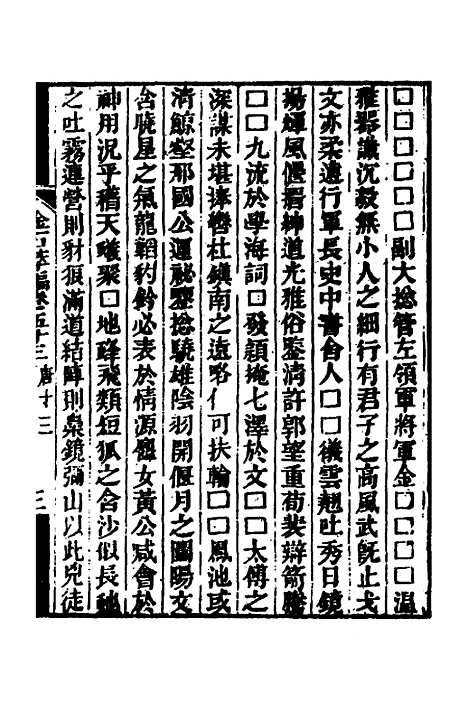 □□□□□□副大捴管左領軍將軍金□□□□□温
雅器識沉毅無小人之細行有君子之高風武旣止戈
文亦柔遠行軍長史中書舍人□□儀雲翹吐秀日鏡
揚輝風偃搢紳道光雅俗鑒清許郭望重荀裴辯箭騰
□□九流於學海詞□發穎掩七澤於文□□太傅之
深謀未堪捧轡杜鎮南之遠略僅可扶輪□□鳳池或
清鯨壑邢國公運祕鑒捴驍雄陰羽開偃月之圖陽文
含曉星之氣龍韜豹鈐必表於情源玄女黃公咸會於
神用況乎稽天蟻聚□地蜂飛類短狐之含沙似長虵
之吐霧連營則豺狼滿道結陣則梟鏡彌山以此兇徒
金石萃編卷五十三 唐十三
三